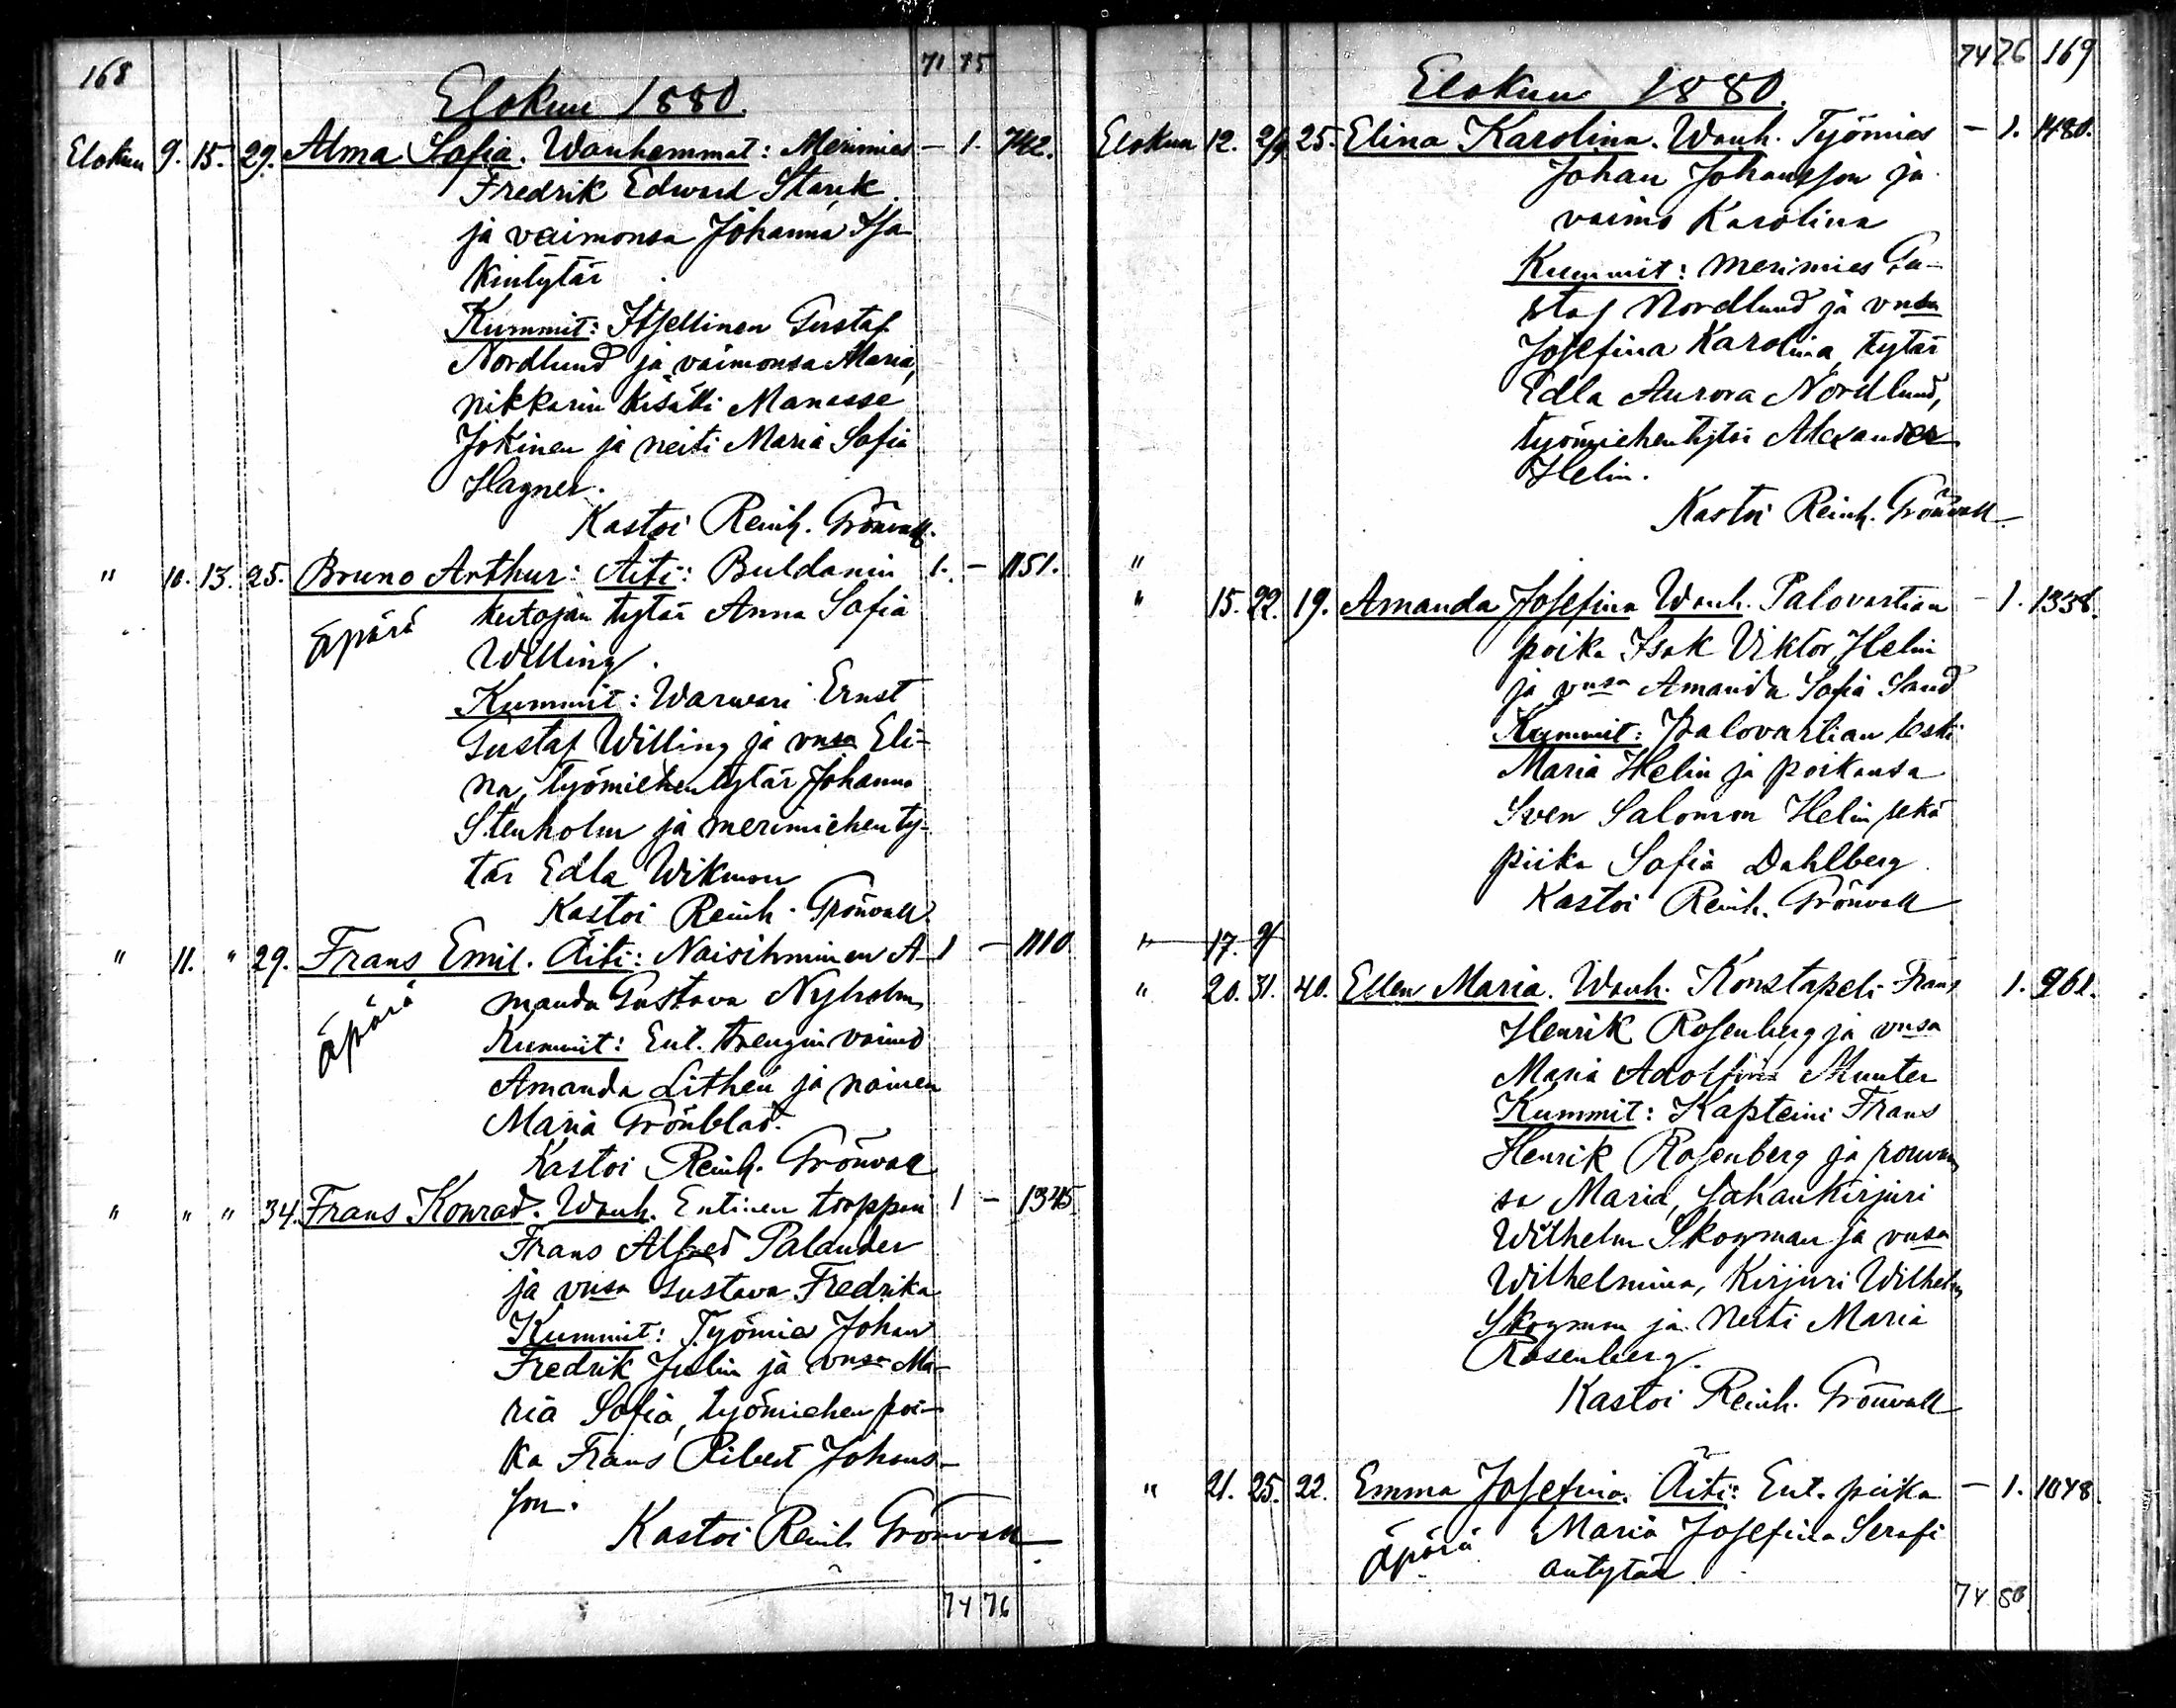 168 71 75
Elokuu 1880.
Elokuu 9. 15. 29. Alma Sofia. Wanhemmat: Merimies – 1. 742.
Fredrik Edward Stark
ja vaimonsa Johanna Isa-
kintytär
Kummit: Itsellinen Gustaf
Nordlund ja vaimonsa Maria,
nikkarin kisälli Manasse
Jokinen ja neiti Maria Sofia
Hagner.
Kastoi Reinh. Grönvall.
" 10. 13. 25. Bruno Arthur: Äiti: Buldanin 1. – 1151.
äpärä kutojan tytär Anna Sofia
Willing.
Kummit: Warwari Ernst
Gustaf Willing ja vnsa Eli-
na, työmiehen tytär Johanna
Stenholm ja merimiehen ty-
tär Edla Wikman
Kastoi Reinh. Grönvall.
" 11. " 29. Frans Emil. Äiti: Naisihminen A- 1 – 1110
äpärä manda Gustava Nyholm
Kummit: Ent. trengin vaimo
Amanda Lithén ja nainen
Maria Grönblad.
Kastoi Reinh. Grönvall
" " " 34. Frans Konrad. Wanh. Entinen torppari 1 – 1345
Frans Alfred Palander
ja vnsa Gustava Fredrika
Kummit: Työmies Johan
Fredrik Julin ja vnsa Ma-
ria Sofia, työmiehen poi-
ka Frans Ribert Johans-
son.
Kastoi Reinh Grönvall
74 76
74 76 169
Elokuu 1880.
Elokuu 12. 2/9 25. Elina Karolina. Wanh. Työmies – 1. 1480.
Johan Johansson ja
vaimo Karolina
Kummit: Merimies Gu-
staf Nordlund ja vnsa
Josefina Karolina, tytär
Edla Aurora Nordlund,
työmiehen Alexander
Helin.
Kastoi Reinh. Grönvall
"
" 15. 22. 19. Amanda Josefina Wanh. Palovartian – 1. 1338.
poika Isak Viktor Helin
ja vnsa Amanda Sofia Sand
Kummit: Palovartian leski
Maria Helin ja poikansa
Sven Salomon Helin sekä
piika Sofia Dahlberg
Kastoi Reinh. Grönvall
" 17.
" 20. 31. 40. Ellen Maria. Wanh. Konstapeli Frans 1. 961.
Henrik Rosenberg ja vnsa
Maria Adolfina Munter
Kummit: Kapteini Frans
Henrik Rosenberg ja rouvan
sa Maria, Sahankirjuri
Wilhelm Skogman ja vnsa
Wilhelmina, Kirjuri Wilhelm
Skogman ja Neiti Maria
Rosenberg.
Kastoi Reinh. Grönvall
" 21. 25. 22. Emma Josefina. Äiti: Ent. piika – 1. 1048.
äpärä Maria Josefina Serafi
antytär.
74 80.